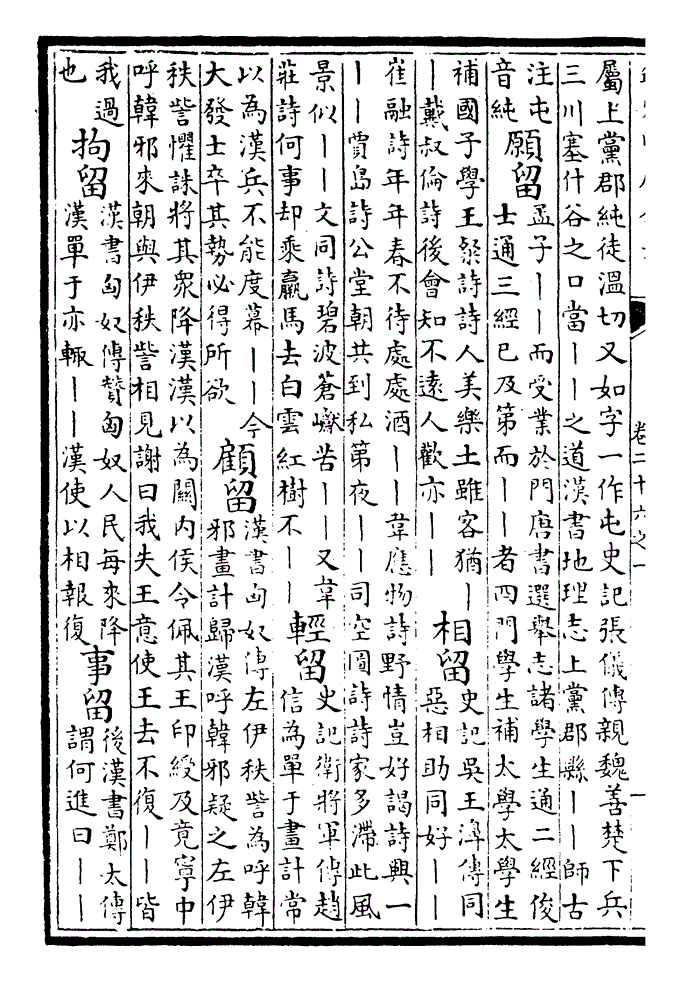 卷二十六之一
屬上黨郡純徒溫切又如字一作屯史記張儀傳親魏善楚下兵
三川塞什谷之口當丨丨之道漢書地理志上黨郡縣丨丨師古
注屯
音純
願留
孟子丨丨而受業於門唐書選舉志諸學生通二經俊
士通三經已及第而丨丨者四門學生補太學太學生
補國子學王粲詩詩人美樂土雖客猶丨
丨戴叔倫詩後會知不遠人歡亦丨丨
相留
史記吳王濞傳同
惡相助同好丨丨
崔融詩年年春不待處處酒丨丨韋應物詩野情豈好謁詩興一
丨丨賈島詩公堂朝共到私第夜丨丨司空圖詩詩家多滯此風
景似丨丨文同詩碧波蒼巘苦丨丨又韋
莊詩何事却乘羸馬去白雲紅樹不丨丨
輕留
史記衛將軍傳趙
信為單于畫計常
以為漢兵不能度幕丨丨今
大發士卒其勢必得所欲
顧留
漢書匈奴傳左伊秩訾為呼韓
邪畫計歸漢呼韓邪疑之左伊
秩訾懼誅將其眾降漢漢以為關內侯令佩其王印綬及竟寧中
呼韓邪來朝與伊秩訾相見謝曰我失王意使王去不復丨丨皆
我過
也
拘留
漢書匈奴傳贊匈奴人民每來降
漢單于亦輒丨丨漢使以相報復
事留
後漢書鄭太傳
謂何進曰丨丨